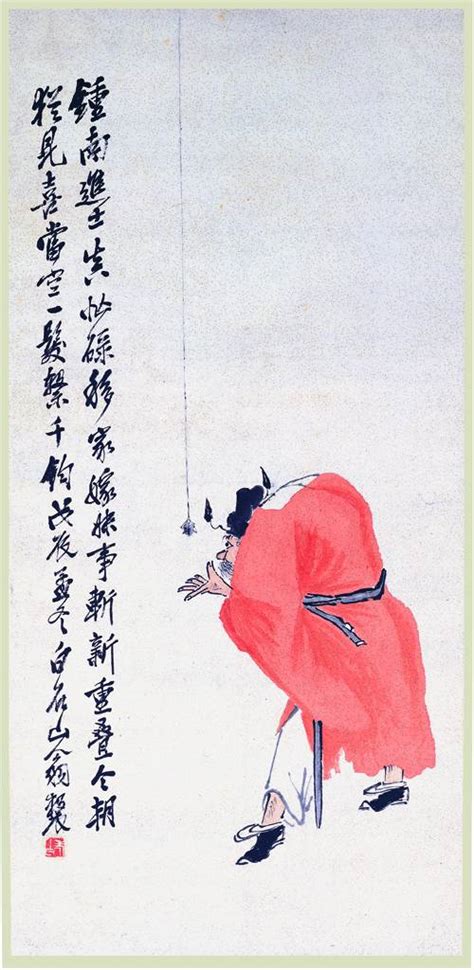 鍾南進士真忙碌移家嫁妹事斬新重疊今朝
猶見喜當空一髮繫千鈞戊辰孟冬白石山翁製